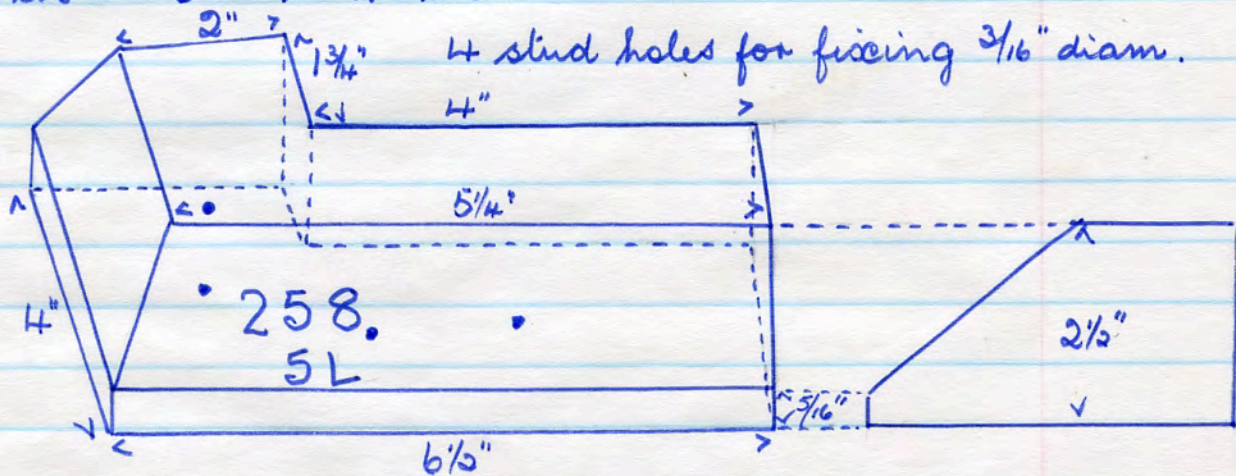 2"
1 3/4"
4 stud holes for fixing 3/16" diam.
4"
5 1/4"
4"
258
5L
2 1/2"
5/16"
6 1/2"